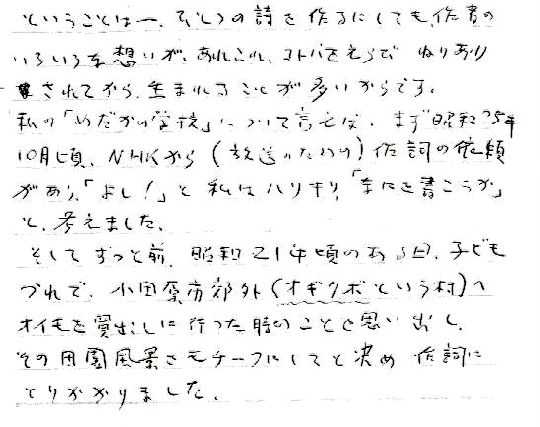 ということは一、ひとつの詩を作るにしても、作者の
いろいろな想いが、あれこれ、コトバをえらび ねりあり
されてから、生まれることが多いからです。
私の「めだかの学校」について言えば、まず昭和25年
10月頃、NHKから(放送のための)作詞の依頼
があり、「よし!」と私はハリキリ、「なにを書こうか」
と、考えました。
そして ずっと前、昭和21年頃のある日、子ども
づれで、小田原市郊外(オギクボという村)へ
オイモを買出しに行った時のことを思い出し、
その田園風景をモチーフにしてと決め 作詞に
とりかかりました。